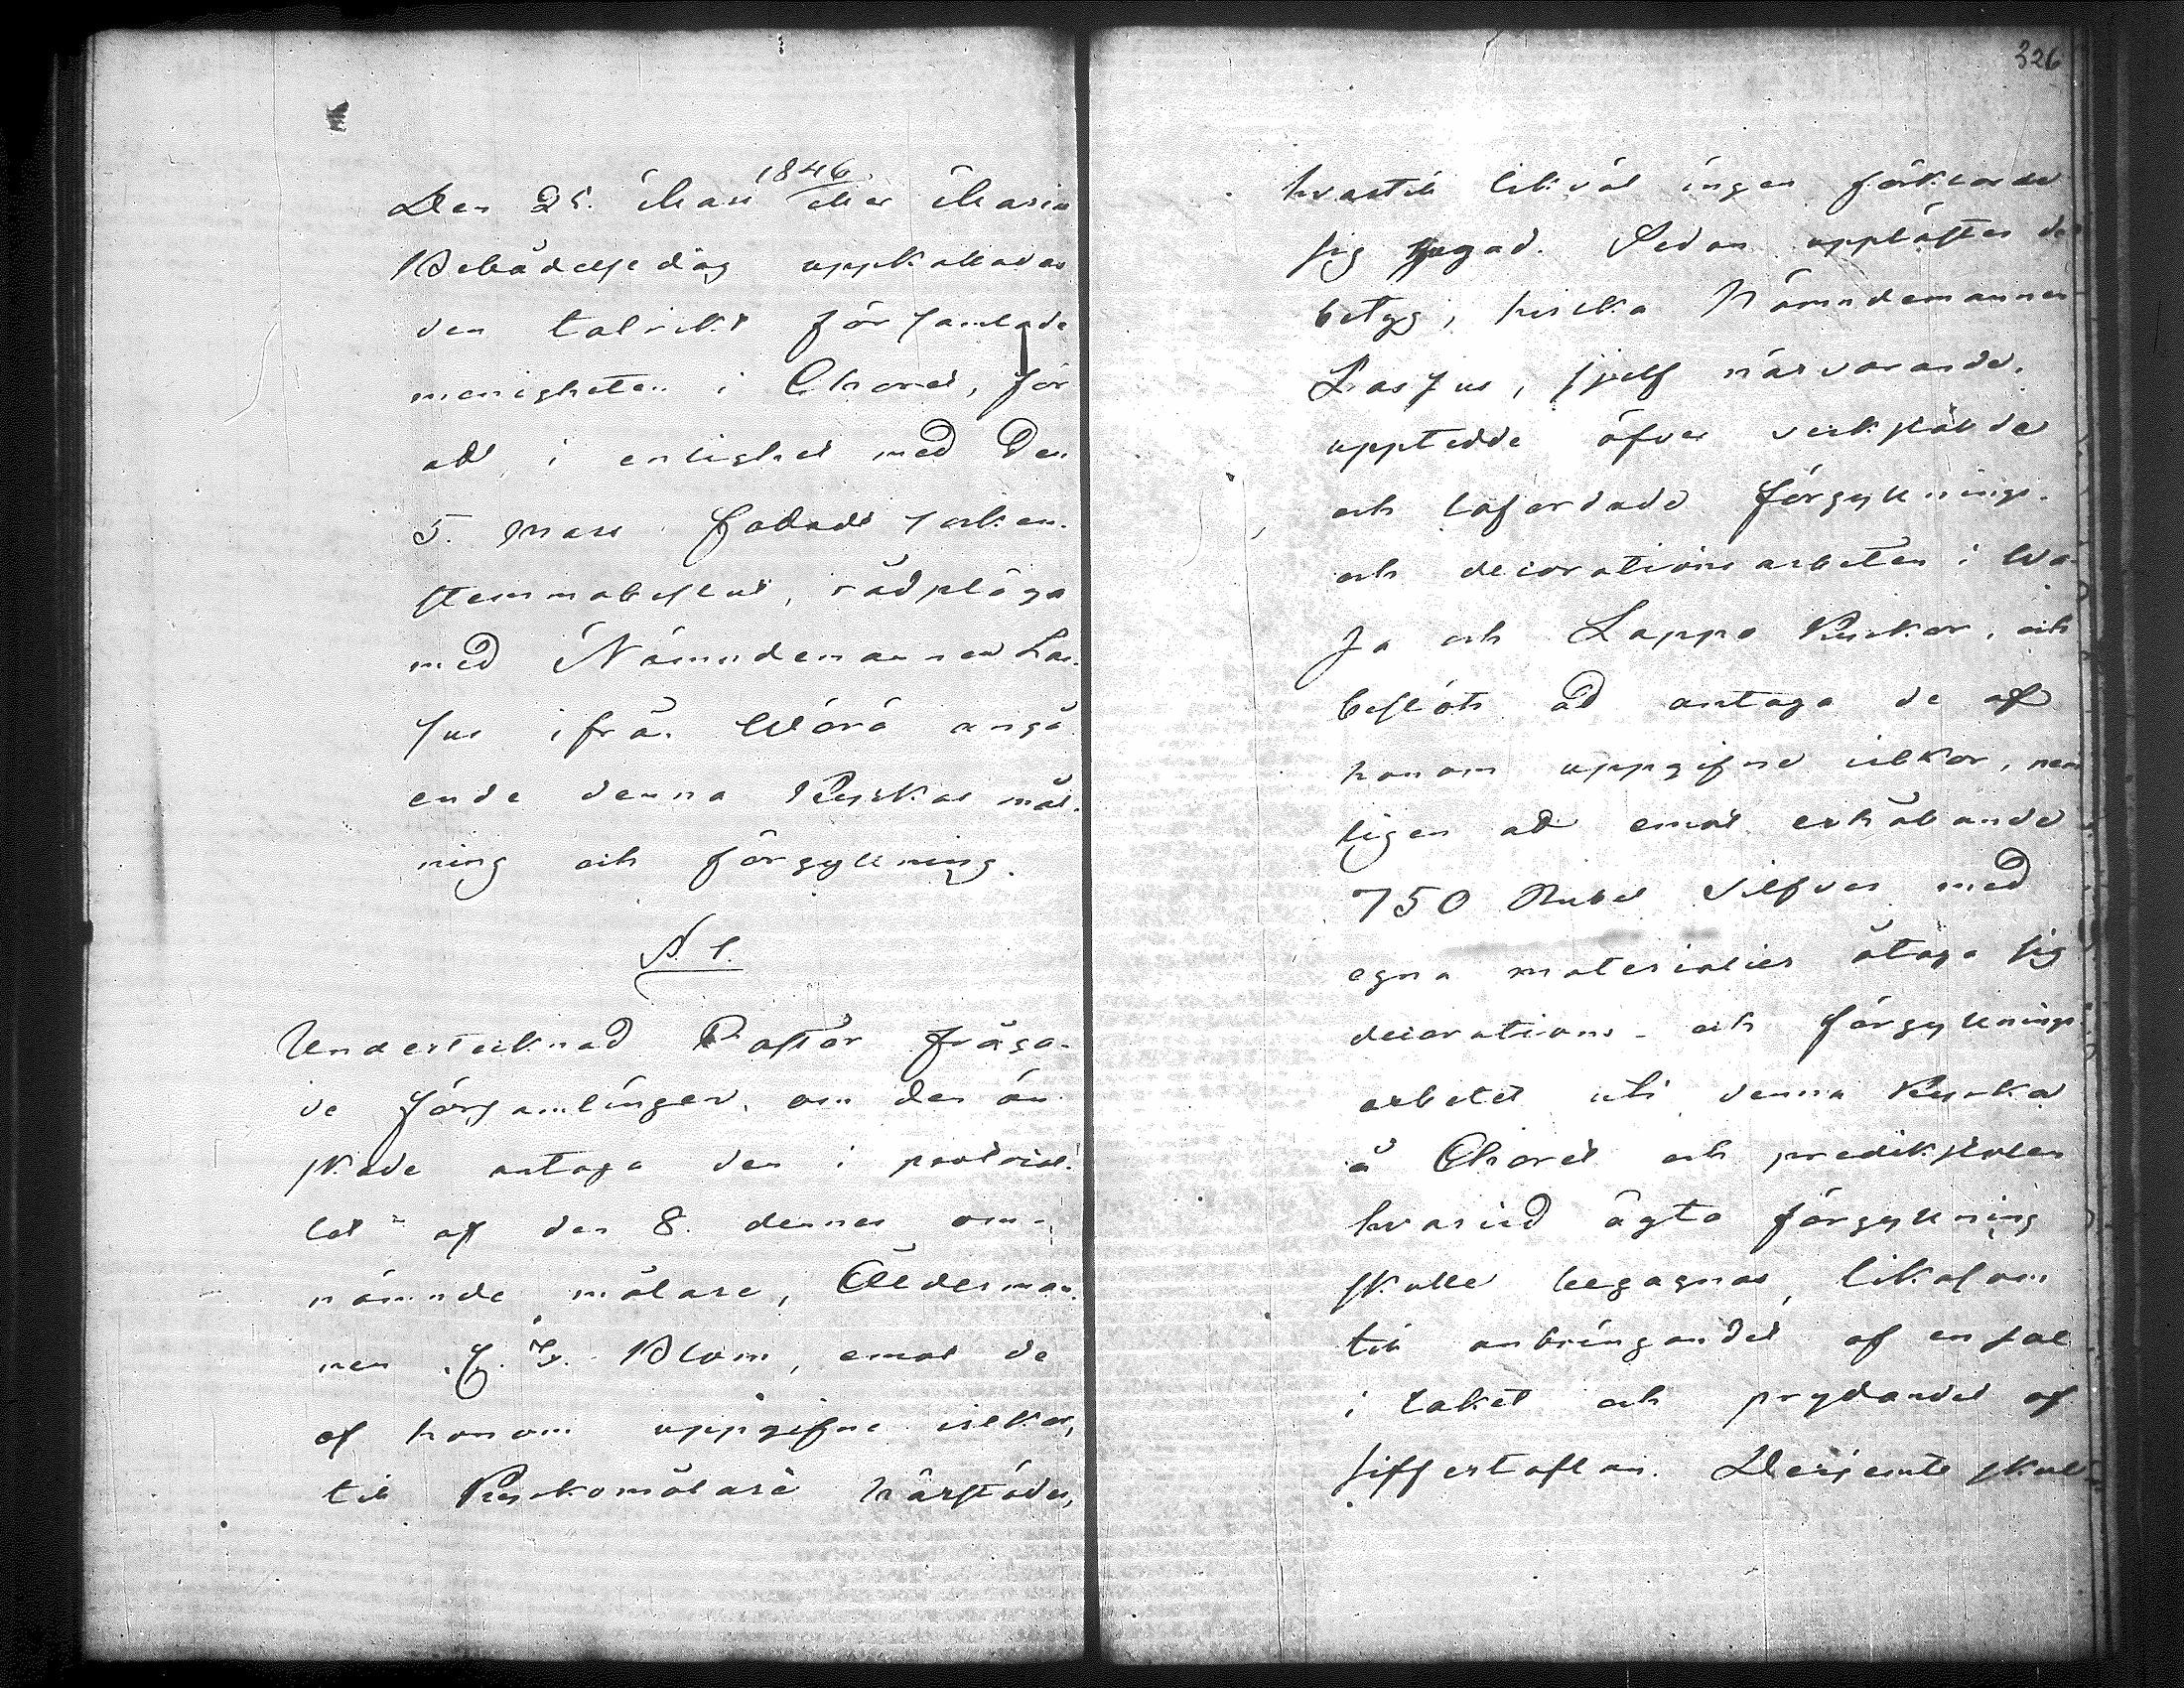 1846.
Den 25. Mars eller Mariæ
Bebådelsedag uppkallades
den talrikt församlade
menigheten i Choret, för
att i enlighet med den
5. Mars fattadt socken-
stemmobeslut, rådpläga
med Nämndemannen Las-
sus ifrån Wörå angå-
ende denna Kyrkas mål-
ning och förgyllning.
§. 1.
Undertecknad Pastor fråga-
de församlingen, om den ön-
skade antaga den i protocol-
let af den 8. dennes om-
nämnde målare, Ålderman-
nen Blom, emot de
af honom uppgifne vilkor,
till Kyrkomålare härstädes,
326
hvartill likväl ingen förklarade
sig hugad. Sedan upplästes de
betyg, hvilka Nämndemannen
Lassus, sjelf närvarande,
upptedde öfver verkställde
och lofordade förgyllnings-
och decorationsarbeten i Wa-
sa och Lappo Kyrkor, och
beslöts att antaga de af
honom uppgifne vilkor, nem-
ligen att emot erhållande
750 Rubel Silfver med
egna materialier åtaga sig
decorations- och förgyllnings-
arbetet uti denna Kyrka
å Choret och predikstolen
hvarvid ägta förgyllning
skulle begagnas, likasom
till anbringandet af en sol
i taket och prydandet af
siffertaflan. Derjemte skul-